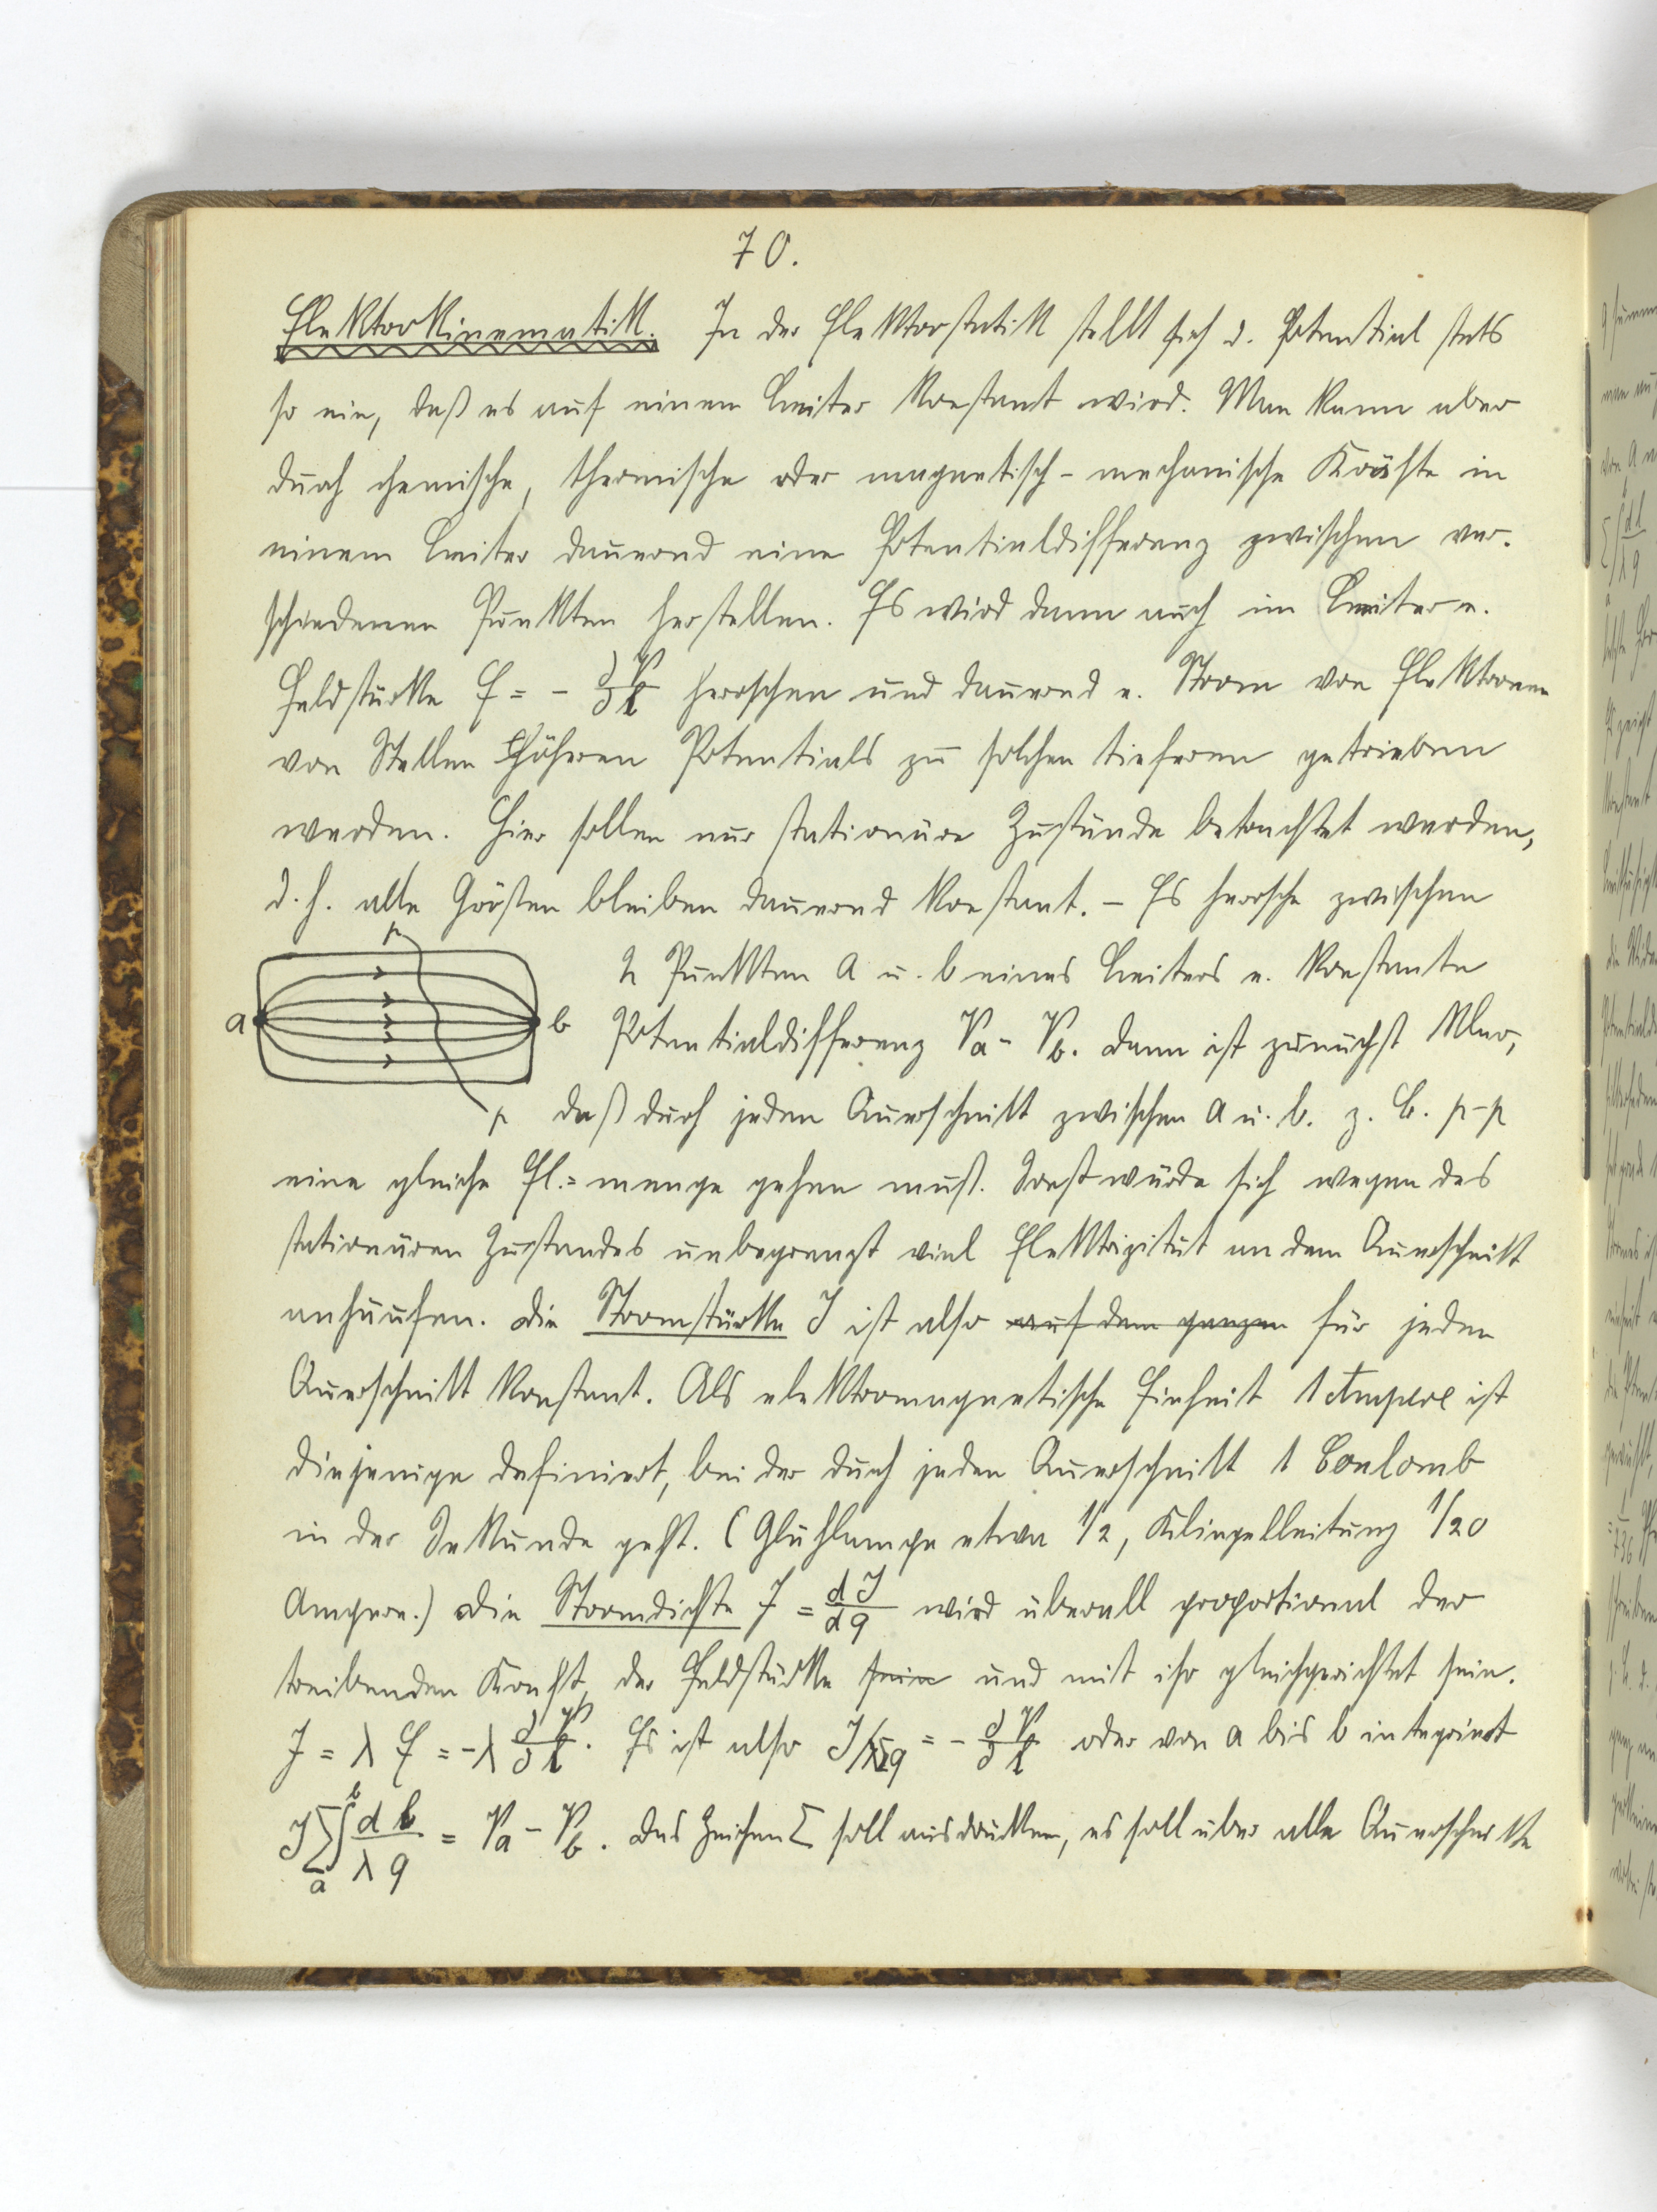 70.
Elektrokinematik. In der Elektrostatik stellt sich d. Potential stets
so ein, daß es auf einem Leiter konstant wird. Man kann aber
durch chemische, thermische oder magnetisch-mechanische Kräfte in
einem Leiter dauernd eine Potentialdifferenz zwischen ver-
schiedenen Punkten herstellen. Es wird dann auch im Leiter e.
Feldstärke E = - ∂V/∂l herrschen und dauernd e. Strom von Elektronen
von Stellen höheren Potentials zu solchen tieferen getrieben
werden. Hier sollen nur stationäre Zustände betrachtet werden,
d.h. alle Größen bleiben dauernd konstant. – Es herrsche zwischen
p
2 Punkten a u. b eines Leiters e. konstante
a b Potentialdifferenz Va - Vb. Dann ist zunächst klar,
p daß durch jeden Querschnitt zwischen a u. b. z. B. p-p
eine gleiche El.=menge gehen muß. Sonst würde sich wegen des
stationären Zustandes unbegrenzt viel Elektrizität an dem Querschnitt
anhäufen. Die Stromstärke J ist also auf dem ganzen für jeden
Querschnitt konstant. Als elektromagnetische Einheit 1 Ampere ist
diejenige definiert, bei der durch jeden Querschnitt 1 Coulomb
in der Sekunde geht. (Glühlampe etwa 1/2, Klingelleitung 1/20
Ampere.) Die Stromdichte j = dJ/dq wird überall proportional der
treibenden Kraft, der Feldstärke sein und mit ihr gleichgerichtet sein.
j = λ E = -λ ∂V/∂l. Es ist also J/λΣq = - ∂V/∂l oder von a bis b integriert
J Σ∫ₐᵇ dl/λq = Va - Vb. Das Zeichen Σ soll ausdrücken, es soll über alle Querschnitte